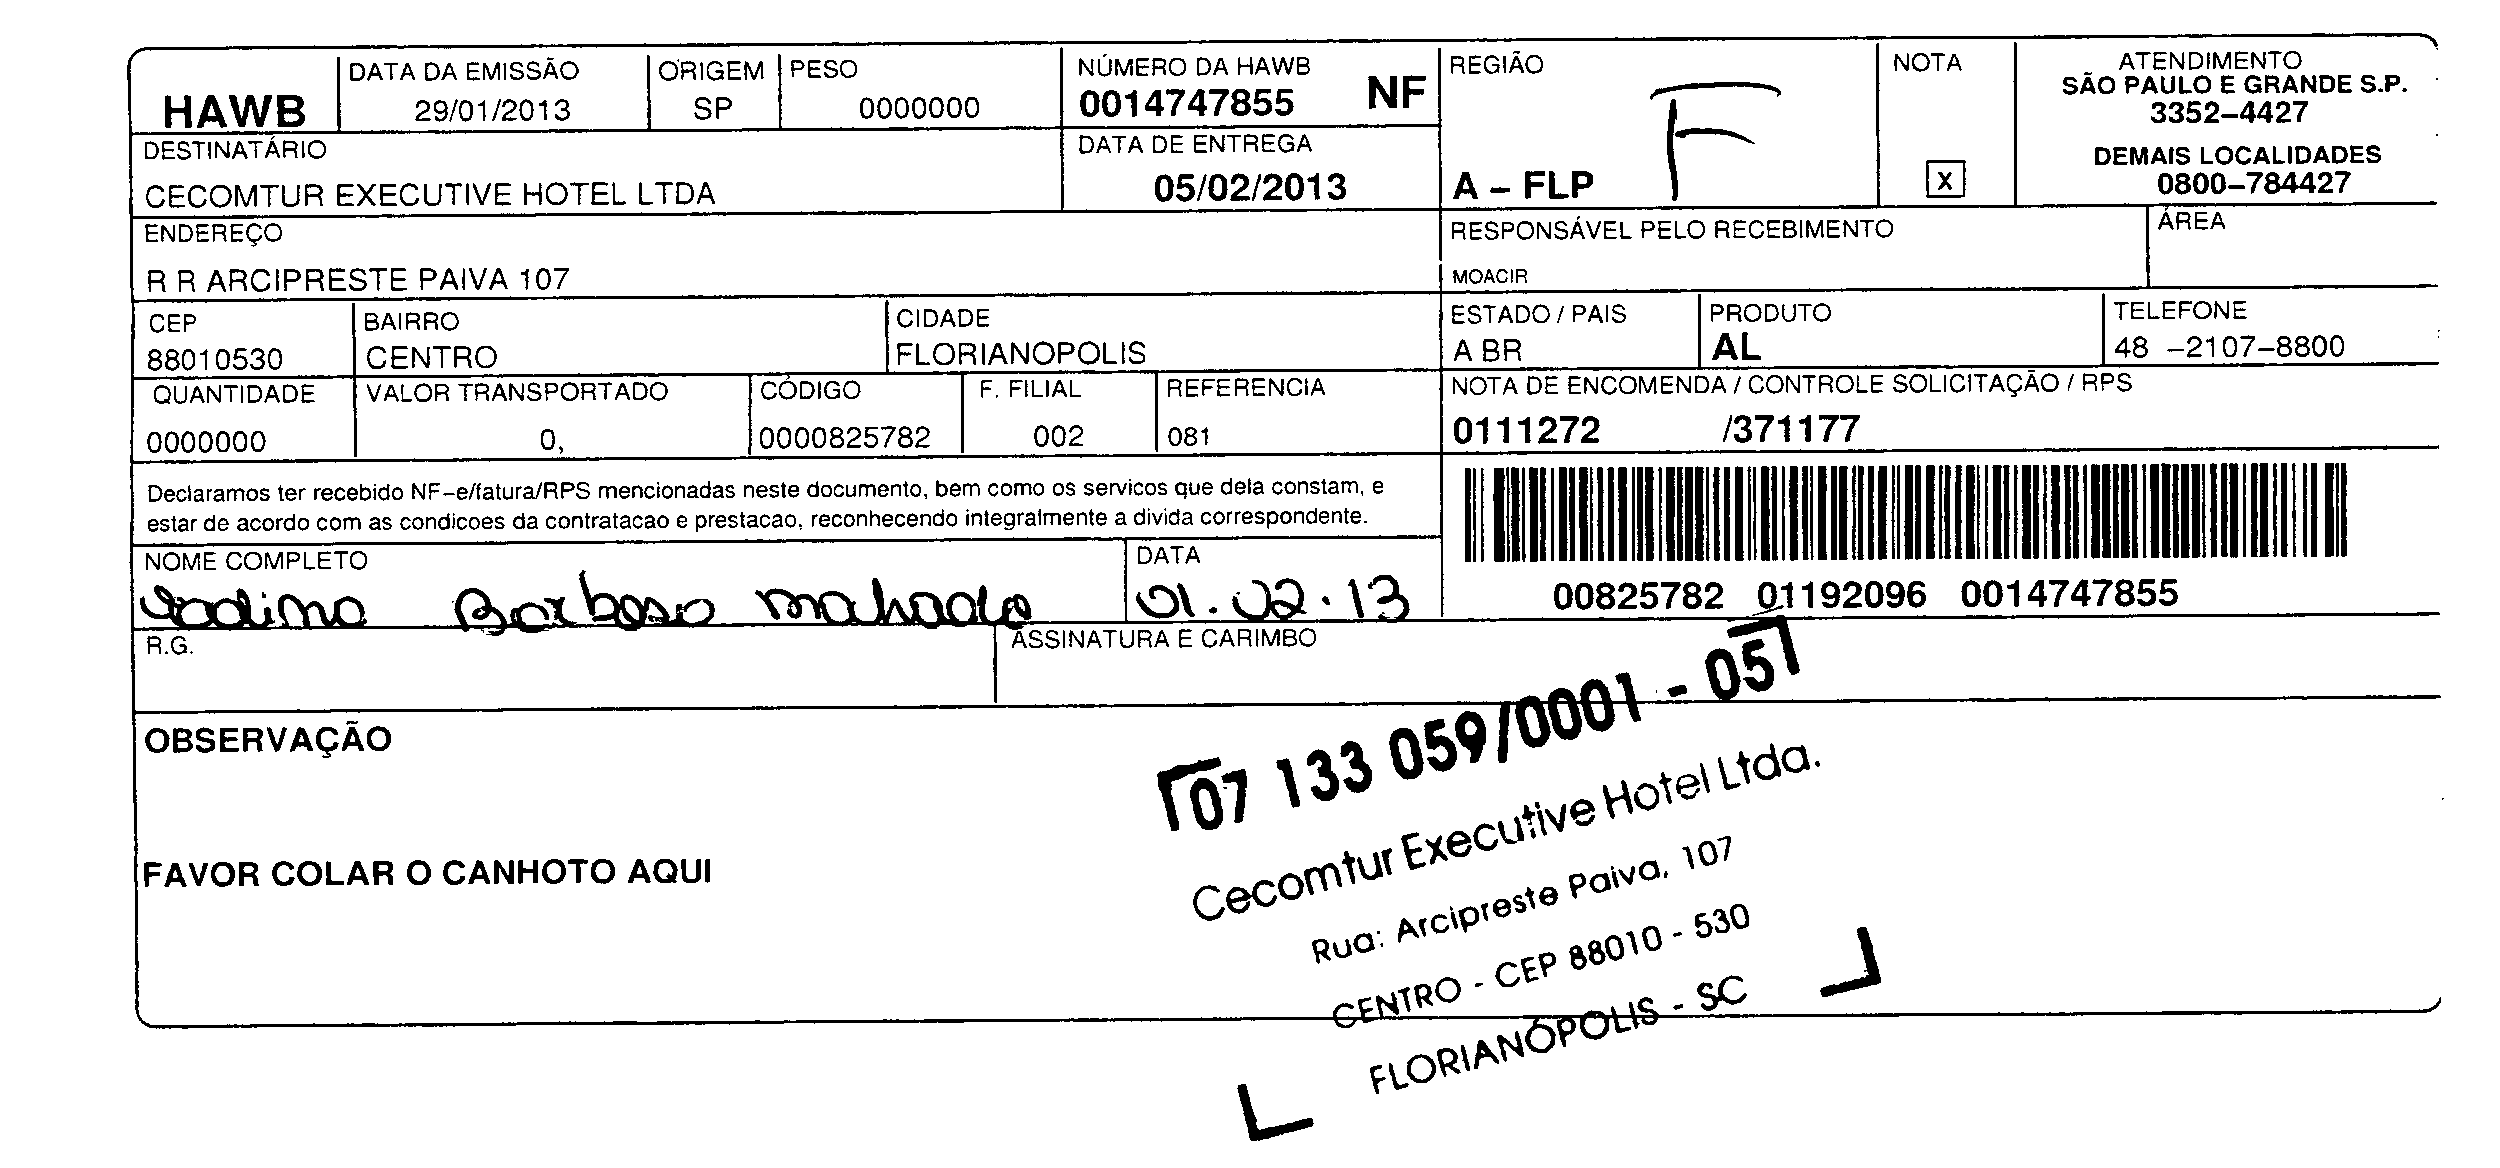 HAWB
DATA DA EMISSÃO
29/01/2013
ORIGEM
SP
PESO
0000000
NÚMERO DA HAWB
0014747855 NF
REGIÃO
A – FLP F
NOTA
X
ATENDIMENTO
SÃO PAULO E GRANDE S.P.
3352–4427
DEMAIS LOCALIDADES
0800–784427
DESTINATÁRIO
CECOMTUR EXECUTIVE HOTEL LTDA
DATA DE ENTREGA
05/02/2013
ENDEREÇO
R R ARCIPRESTE PAIVA 107
RESPONSÁVEL PELO RECEBIMENTO
MOACIR
ÁREA
CEP
88010530
BAIRRO
CENTRO
CIDADE
FLORIANOPOLIS
ESTADO / PAIS
A BR
PRODUTO
AL
TELEFONE
48 –2107–8800
QUANTIDADE
0000000
VALOR TRANSPORTADO
0,
CÓDIGO
0000825782
F. FILIAL
002
REFERENCIA
081
NOTA DE ENCOMENDA / CONTROLE SOLICITAÇÃO / RPS
0111272 /371177
Declaramos ter recebido NF–e/fatura/RPS mencionadas neste documento, bem como os servicos que dela constam, e
estar de acordo com as condicoes da contratacao e prestacao, reconhecendo integralmente a divida correspondente.
00825782 01192096 0014747855
NOME COMPLETO
Barbosa Machado
DATA
01.02.13
R.G.
ASSINATURA E CARIMBO
OBSERVAÇÃO
FAVOR COLAR O CANHOTO AQUI
07 133 059/0001 - 05
Cecomtur Executive Hotel Ltda.
Rua: Arcipreste Paiva, 107
CENTRO - CEP 88010 - 530
FLORIANÓPOLIS - SC